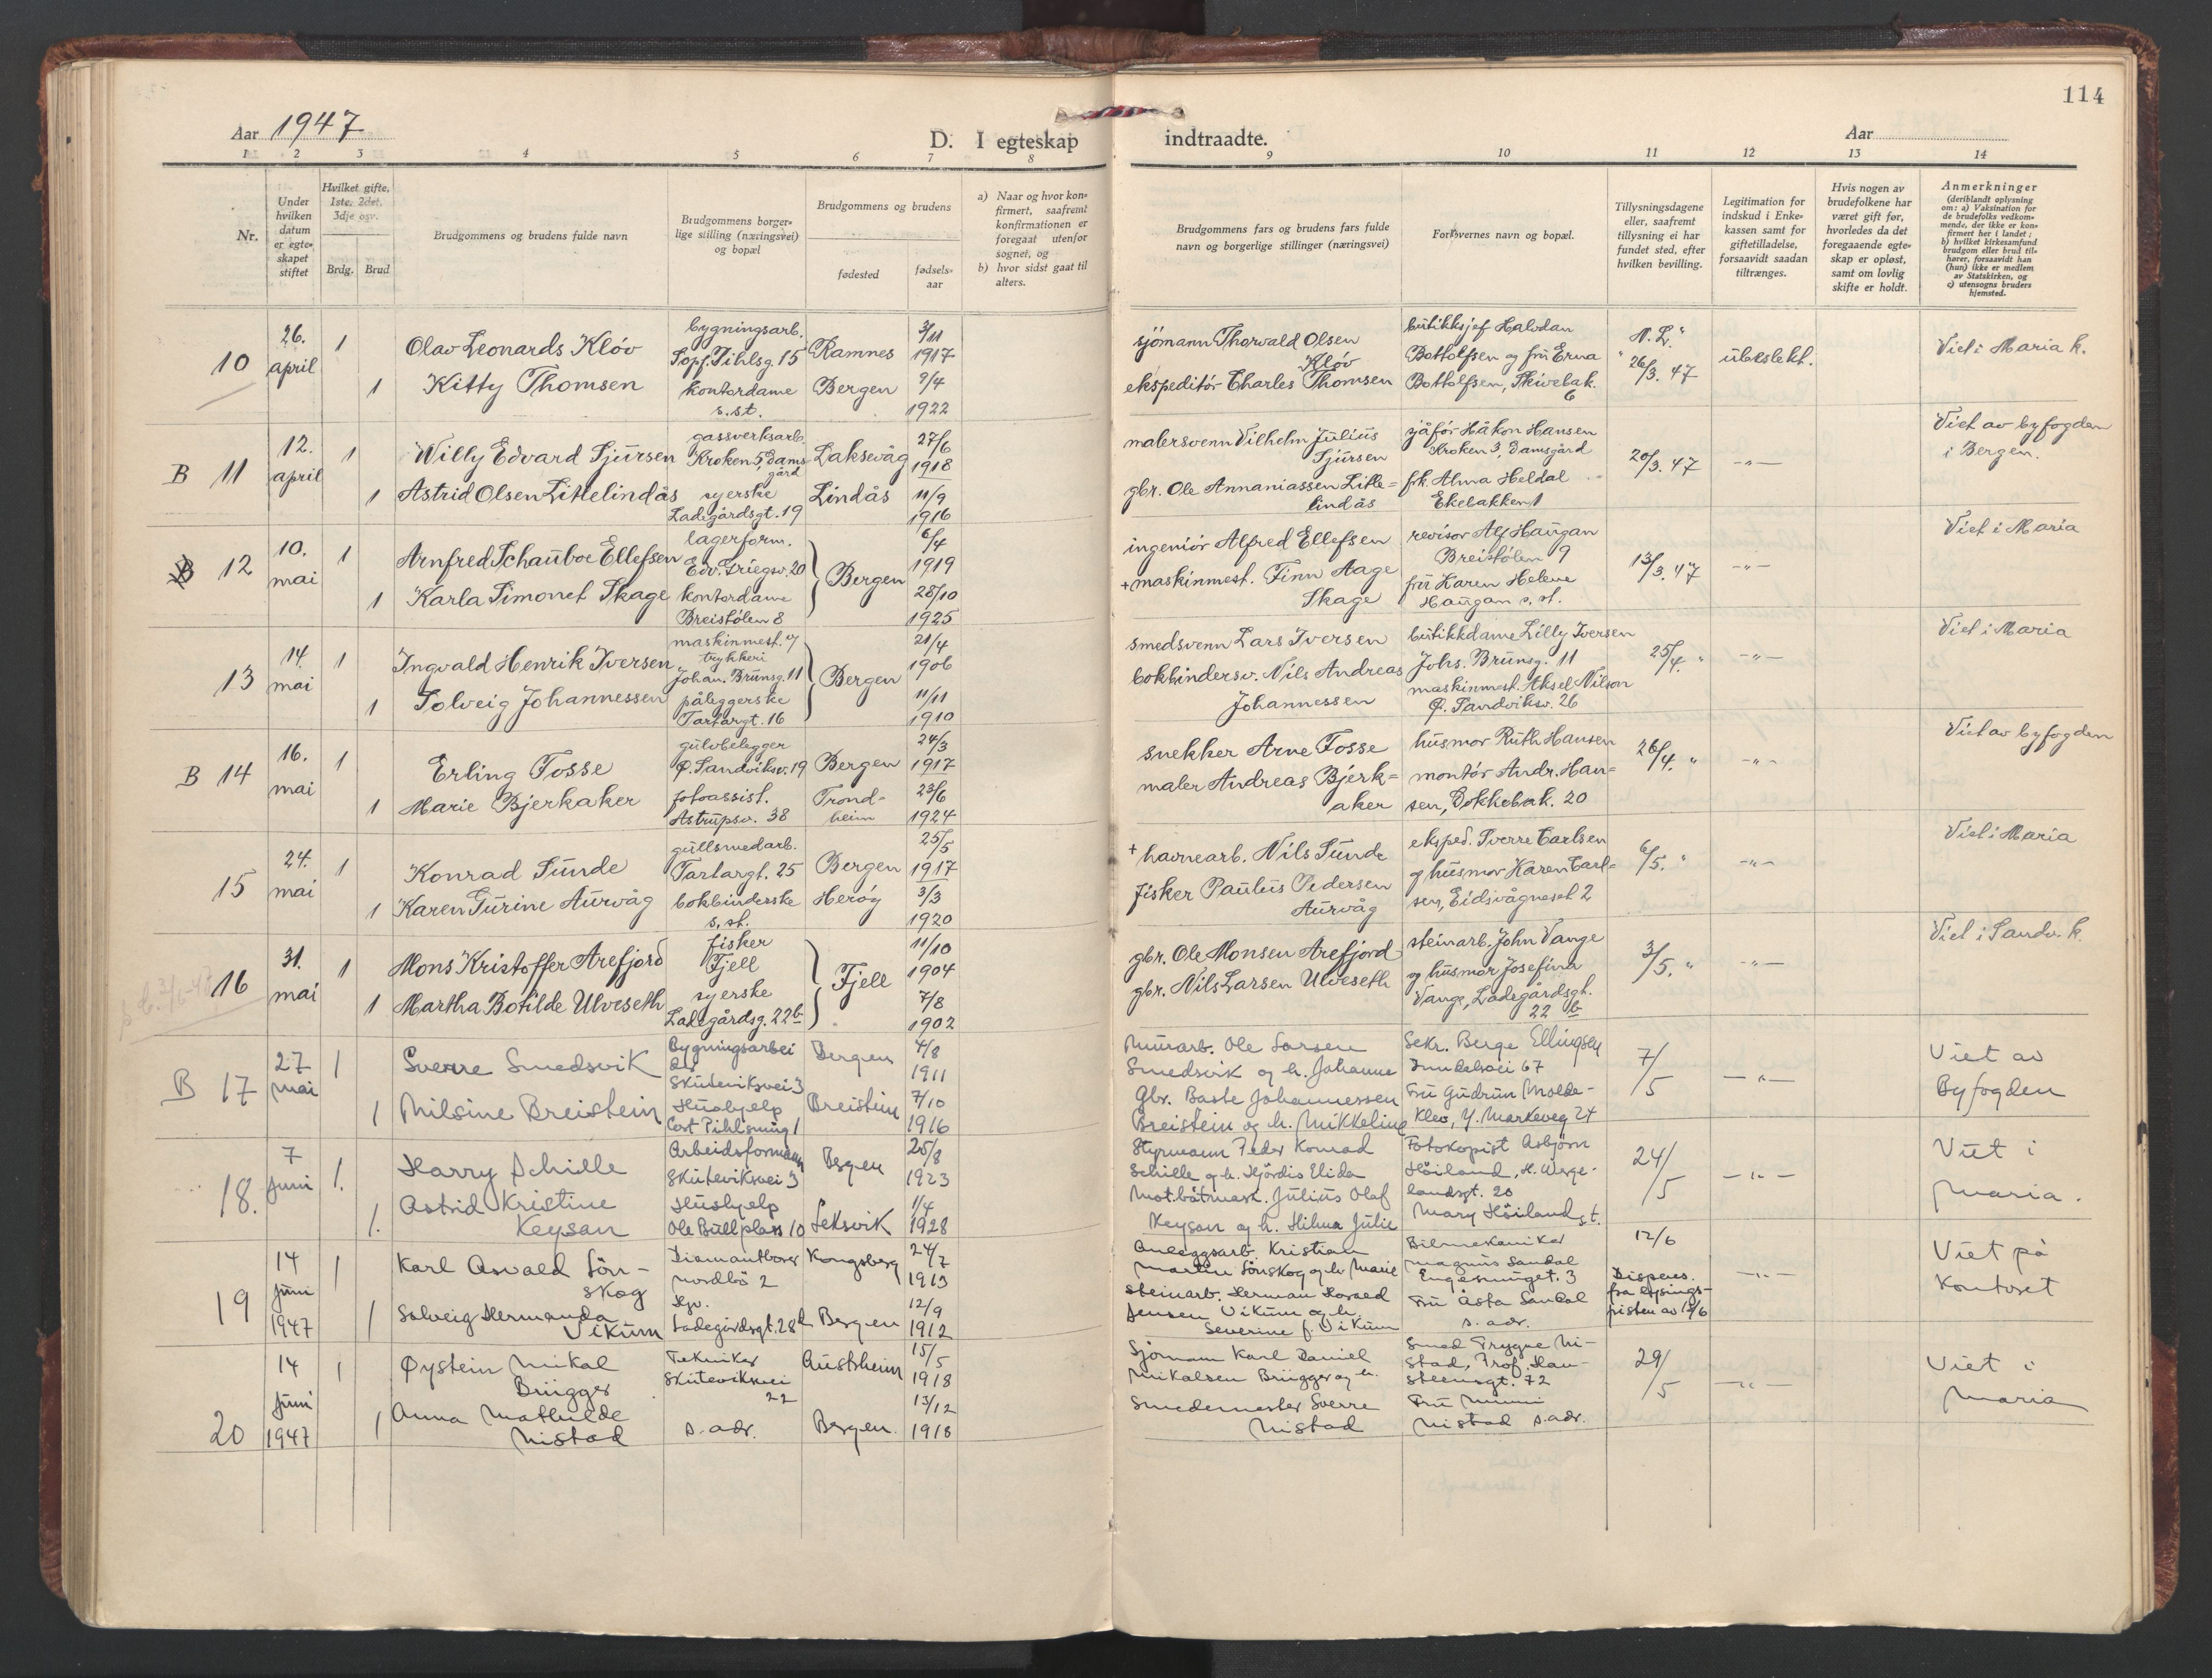 114
Aar 1947
D. I egteskap indtraadte.
Aar
1 2 3 4 5 6 7 8 9 10 11 12 13 14
Nr.
Under hvilken datum er egteskapet stiftet
Hvilket gifte, 1ste, 2det, 3dje osv.
Brdg. Brud
Brudgommens og brudens fulde navn
Brudgommens borgerlige stilling (næringsvei) og bopæl
Brudgommens og brudens
fødested
fødselsaar
a) Naar og hvor konfirmert, saafremt konfirmationen er foregaat utenfor sognet, og
b) hvor sidst gaat til alters.
Brudgommens fars og brudens fars fulde navn og borgerlige stillinger (næringsvei)
Forlovernes navn og bopæl.
Tillysningsdagene eller, saafremt tillysning ei har fundet sted, efter hvilken bevilling.
Legitimation for indskud i Enkekassen samt for giftetilladelse, forsaavidt saadan tiltrænges.
Hvis nogen av brudefolkene har været gift før, hvorledes da det foregaaende egteskap er opløst, samt om lovlig skifte er holdt.
Anmerkninger
(deriblandt oplysning om: a) Vaksination for de brudefolks vedkommende, der ikke er konfirmert her i landet; b) hvilket kirkesamfund brudgom eller brud tilhører, forsaavidt han (hun) ikke er medlem av Statskirken, og c) utensogns bruders hjemsted.
10
26. april
1
Olav Leonards Kløv
bygningsarb.
Sopf. Pihlsg. 15
Ramnes
3/11 1917
sjömann Thorvald Olsen Kløv
butikksjef Halvdan
Bottolfsen og frü Erna
N. L.
26/3. 47
ubeslekt.
Viet i Maria k.
1
Kitty Thomsen
kontordame
s.st.
Bergen
9/4 1922
ekspeditör Charles Thomsen
Bottolfsen, Skivebak. 6
B 11
12. april
1
Willy Edvard Sjürsen
gassverksarb.
Kroken 5, Damsgård
Laksevåg
27/6 1918
malersvenn Vilhelm Jülius Sjürsen
sjåför Håkon Hansen
Kroken 3, Damsgård
20/3. 47
-"-
Viet av byfogden i Bergen.
1
Astrid Olsen Litlelindås
syerske
Ladegårdsgt. 19
Lindås
11/9 1916
gbr. Ole Annaniassen Litlelindås
frk. Alma Heldal
Ekebakken 1
B 12
10. mai
1
Arnfred Schaüboe Ellefsen
lagerform.
Edv. Griegsv. 20
Bergen
6/4 1919
ingeniör Alfred Ellefsen
revisor Alf Haugan
Breistölen 9
13/3. 47
-"-
Viet i Maria
1
Karla Simonet Skage
kontordame
Breistölen 8
28/10 1925
+ maskinmest. Finn Aage Skage
frü Karen Helene
Haugan s. st.
13
14. mai
1
Ingvald Henrik Iversen
maskinmest. v/
trykkeri
Johan. Brünsg. 11
Bergen
21/4 1906
smedsvenn Lars Iversen
butikkdame Lilly Iversen
Johs. Brünsg. 11
25/4. "
-"-
Viet i Maria
1
Solveig Johannessen
påleggerske
Tartargt. 16
11/11 1910
bokbindersv. Nils Andreas Johannessen
maskinmest. Aksel Nilson
Ø. Sandviksv. 26
B 14
16. mai
1
Erling Fosse
gülvbelegger
Ø. Sandviksv. 19
Bergen
24/3 1917
snekker Arne Fosse
hüsmor Ruth Hansen
26/4. "
-"-
Viet av byfogden
1
Marie Bjerkaker
fotoassist.
Astrüpsv. 38
Trondheim
23/6 1924
maler Andreas Bjerkaker
montör Andr. Hansen, Dokkebak. 20
15
24. mai
1
Konrad Sünde
güllsmedarb.
Tartargt. 25
Bergen
25/5 1917
+ havnearb. Nils Sünde
eksped. Sverre Carlsen
6/5. "
-"-
Viet i Maria
1
Karen Türine Aürvåg
bokbinderske
s. st.
Herøy
3/3 1920
fisker Paulüs Pedersen Aürvåg
og hüsmor Karen Carlsen, Eidsvågneset 2
16
31. mai
1
Mons Kristoffer Arefjord
fisker
Fjell
Fjell
11/10 1904
gbr. Ole Monsen Arefjord
steinarb. John Vange
3/5. "
-"-
Viet i Sandv. k.
1
Martha Botilde Ulveseth
syerske
Ladegårdsg. 22b
7/8 1902
gbr. Nils Larsen Ulveseth
og hüsmor Josefina
Vange, Ladegårdsgt. 22 b
B 17
27 mai
1
Sverre Smedsvik
Bygningsarbeider
Skuteviksvei 3
Bergen
4/8 1911
Mürarb. Ole Larsen
Smedsvik og h. Johanne
Sekr. Berge Ellingsen
67
7/5
-"-
Viet av Byfogden
1
Nilsine Breistein
Hüshjelp
Cort Pihlsmüg 1
Breistein
7/10 1916
Gbr. Baste Johannessen
Breistein og h. Mikkeline
Frü Gudrün Moldeklev, Y. Markeveg 24
18.
7 juni
1.
Harry Schille
Arbeidsformann
Skuteviksvei 3
Bergen
25/8 1923
Styrmann Peder Konrad
Schille og h. Hjördis Elida
Fotokopist Asbjörn
Höiland, H. Wergelandsgt. 20
24/5
-"-
Viet i Maria.
1.
Astrid Kristine Keysan
Hüshjelp
Ole Bullplass 10
Leksvik
1/4 1928
Mot.båtmask. Jülius Olaf
Keysan og h. Hilma Jülie
Mary Höiland st.
19
14 juni 1947
1
Karl Osvald Sönskog
Diamantborer
Nordbö 2
Kongsberg
24/7 1913
Anleggsarb. Kristian
Martin Sönskog og h. Marie
Bilmekaniker
Magnus Sandal
Engesmuget. 3
12/6
Dispens. fra lysningsfristen av 12/6
-"-
Viet på Kontoret
1
Solveig Hermanda Vikum
Hjv.
Ladegårdsgt. 28d
Bergen
12/9 1912
Steinarb. Herman
Jensen Vikum og h.
Severine f. Vikum
Frü Åsta Sandal
s. adr.
20
14 juni 1947
1
Øystein Mikal Brügger
Tekniker
Skuteviksvei 22
Aüstrheim
15/5 1918
Sjömann Karl Daniel
Mikalsen Brügger og h.
Smed Trygve Nistad, Prof. Hansteensgt. 72
29/5
-"-
Viet i Maria
1
Anna Mathilde Nistad
s. adr.
Bergen.
13/12 1918
Smedemester Sverre Nistad
Frü Minni
Nistad s. adr.